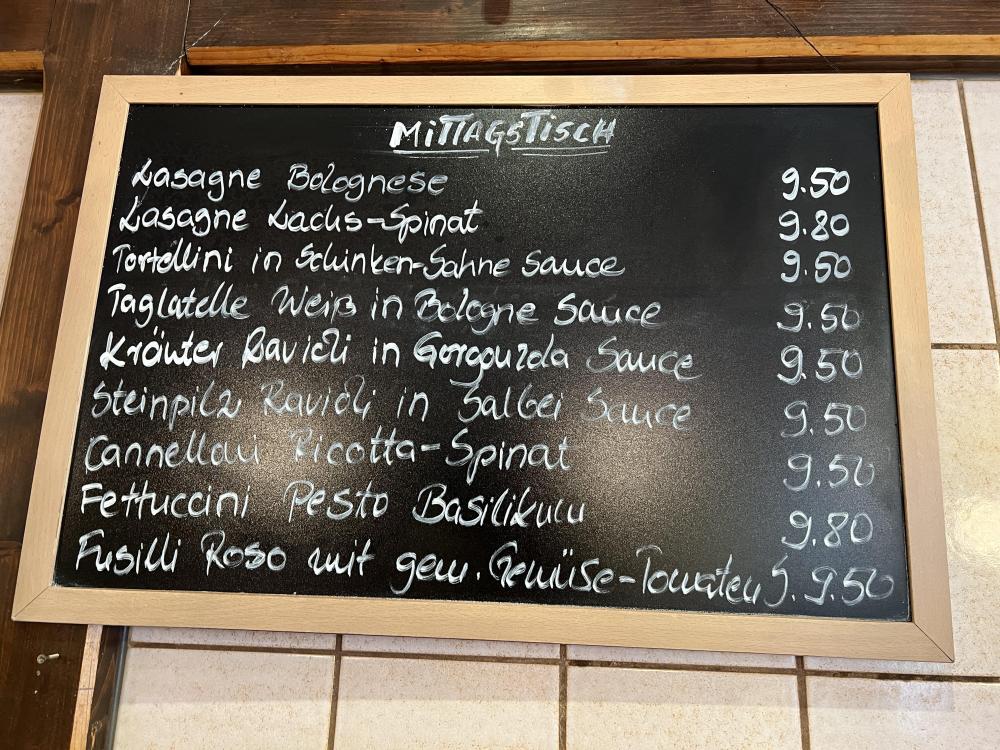 MITTAGSTISCH
Lasagne Bolognese 9.50
Lasagne Lachs-Spinat 9.80
Tortellini in Schinken-Sahne Sauce 9.50
Taglatelle Weiß in Bologne Sauce 9.50
Kräuter Ravioli in Gorgonzola Sauce 9.50
Steinpilz Ravioli in Salbei Sauce 9.50
Cannelloni Ricotta-Spinat 9.50
Fettuccini Pesto Basilikum 9.80
Fusilli Roso mit gem. Gemüse-Tomaten S. 9.50